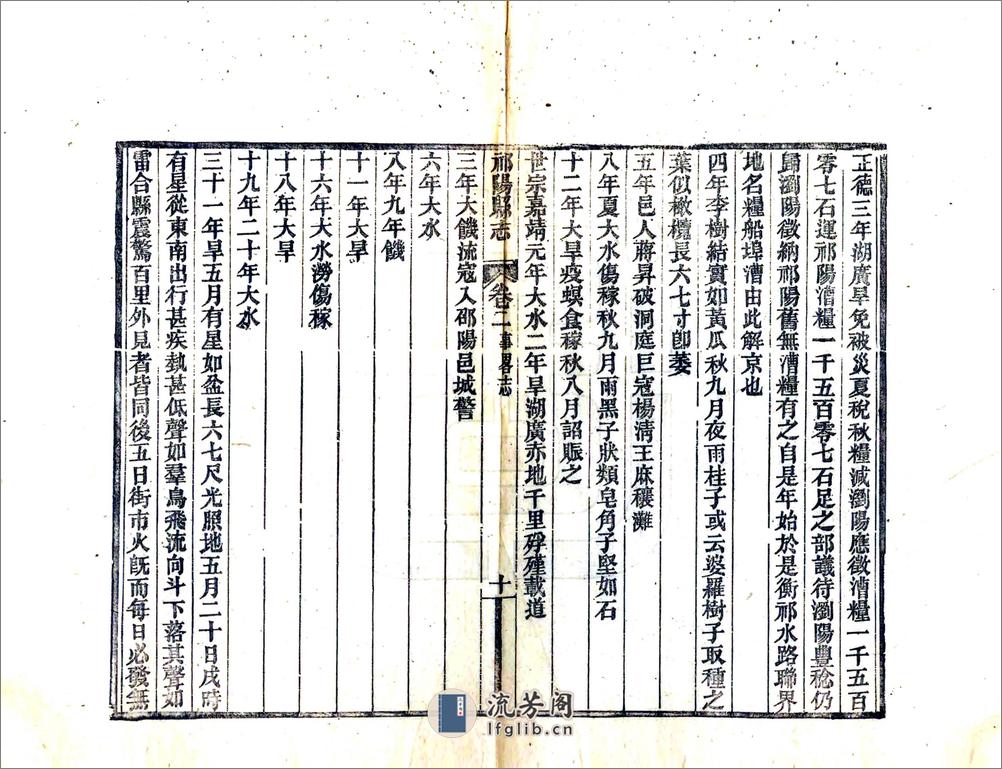 正德三年湖廣旱免被災夏稅秋糧減瀏陽應徵漕糧一千五百
零七石運祁陽漕糧一千五百零七石足之部議待瀏陽豐稔仍
歸瀏陽徵納祁陽舊無漕糧有之自是年始於是衡祁水路聯界
地名糧船埠漕由此解京也
四年李樹結實如黃瓜秋九月夜雨桂子或云婆羅樹子取種之
葉似橄欖長六七寸卽萎
五年邑人蔣昇破洞庭巨寇楊淸王麻穰灘
八年夏大水傷稼秋九月雨黑子狀類皂角子堅如石
十二年大旱疫螟食稼秋八月詔賑之
世宗嘉靖元年大水二年旱湖廣赤地千里殍殣載道
祁陽縣志
卷二事畧志
十一
三年大饑流寇入邵陽邑城警
六年大水
八年九年饑
十一年大旱
十六年大水澇傷稼
十八年大旱
十九年二十年大水
三十一年旱五月有星如盆長六七尺光照地五月二十日戌時
有星從東南出行甚疾埶甚低聲如羣鳥飛流向斗下落其聲如
雷合縣震驚百里外見者皆同後五日街市火旣而每日必發無
流芳阁
lfglib.cn